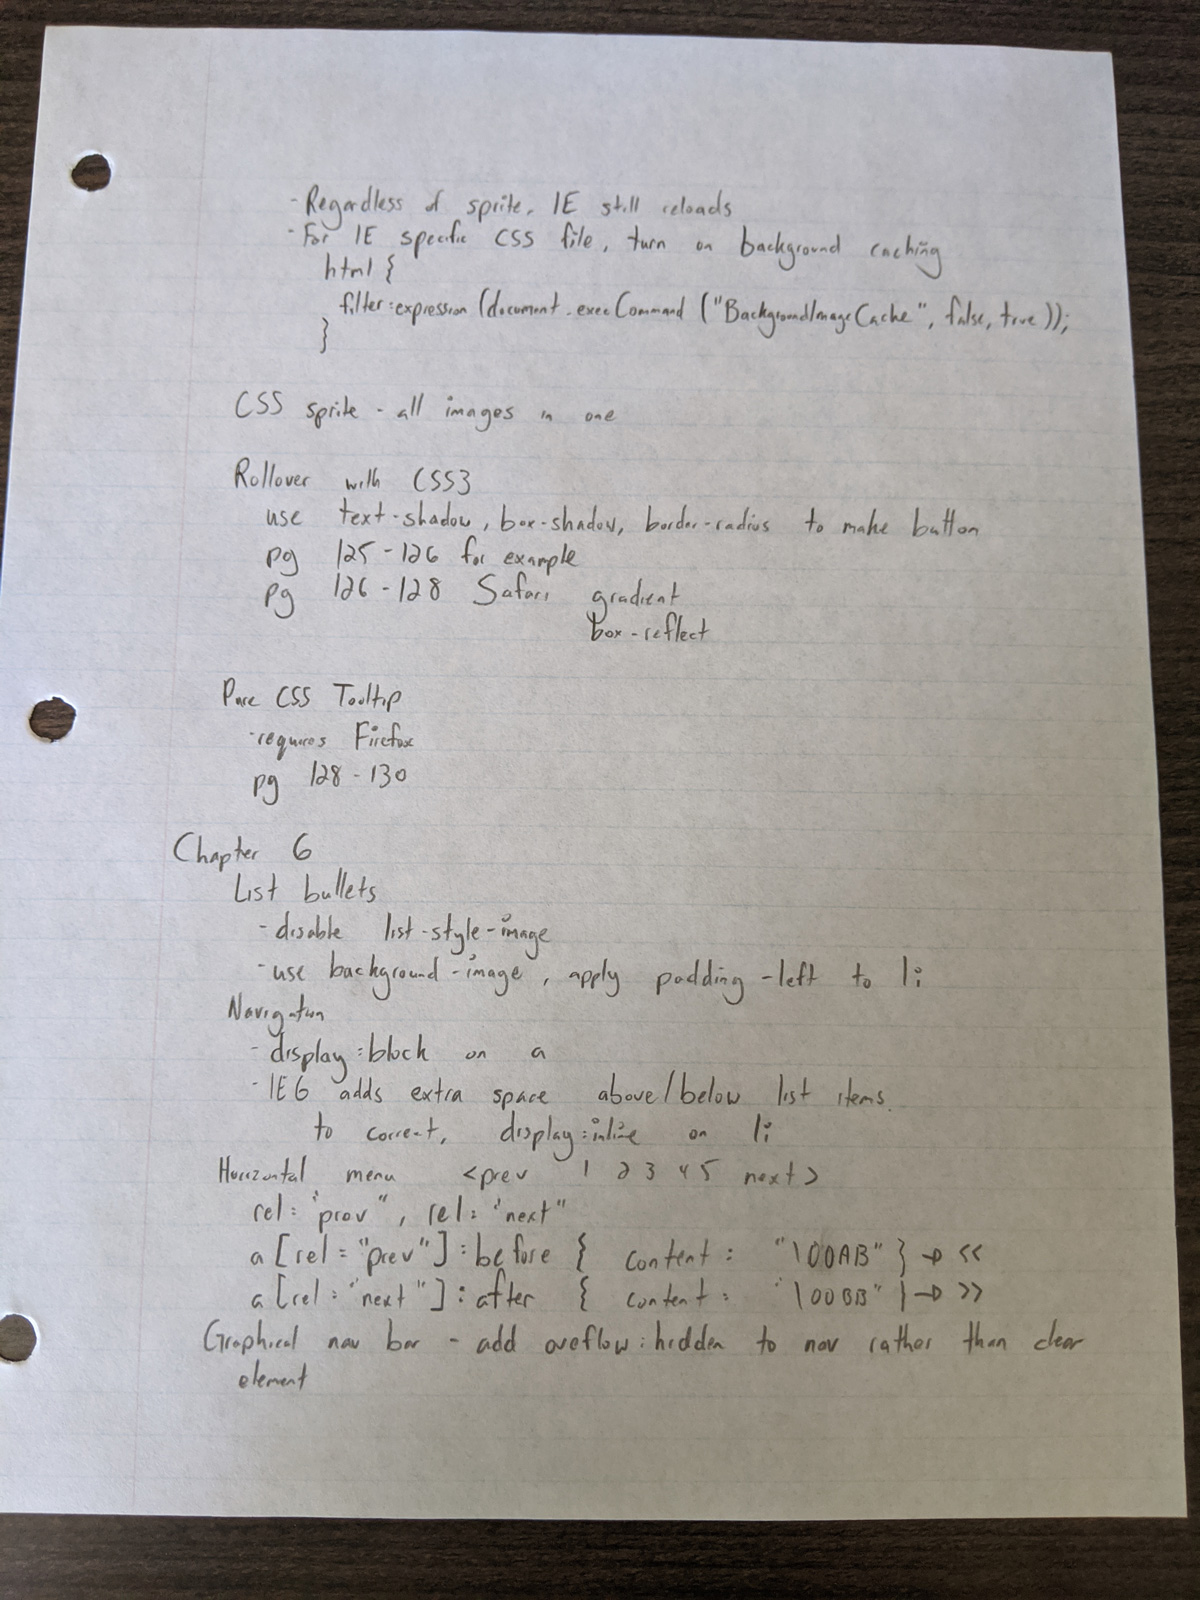 - Regardless of sprite, IE still reloads
- For IE specific CSS file, turn on background caching
html {
filter:expression (document.execCommand ("BackgroundImageCache", false, true));
}
CSS sprite - all images in one
Rollover with CSS3
use text-shadow, box-shadow, border-radius to make button
pg 125-126 for example
pg 126-128 Safari gradient
box-reflect
Pure CSS Tooltip
-requires Firefox
pg 128-130
Chapter 6
List bullets
- disable list-style-image
- use background-image, apply padding-left to li
Navigation
- display:block on a
- IE6 adds extra space above/below list items.
to correct, display:inline on li
Horizontal menu <prev 1 2 3 4 5 next>
rel="prev", rel="next"
a[rel="prev"]:before { content: "\00AB" } → <<
a[rel="next"]:after { content: "\00BB" } → >>
Graphical nav bar - add oveflow:hidden to nav rather than clear
element